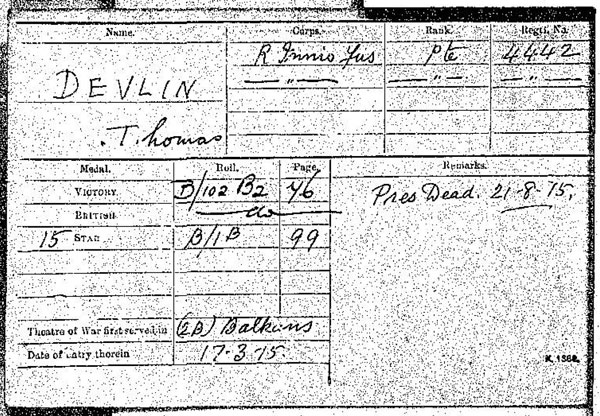 Name. Corps. Rank. Regtl. No.
DEVLIN R Innis Fus Pte 4442
— " — — " — — " —
Thomas
Medal. Roll. Page. Remarks.
VICTORY B/102 B2 46 Pres Dead. 21-8-15.
BRITISH do
15 STAR B/1B 99
Theatre of War first served in (2B) Balkans
Date of entry therein 17.3.15.
K. 1380.